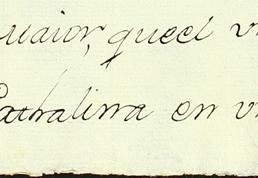 uaior, queel v
Cathalina en v